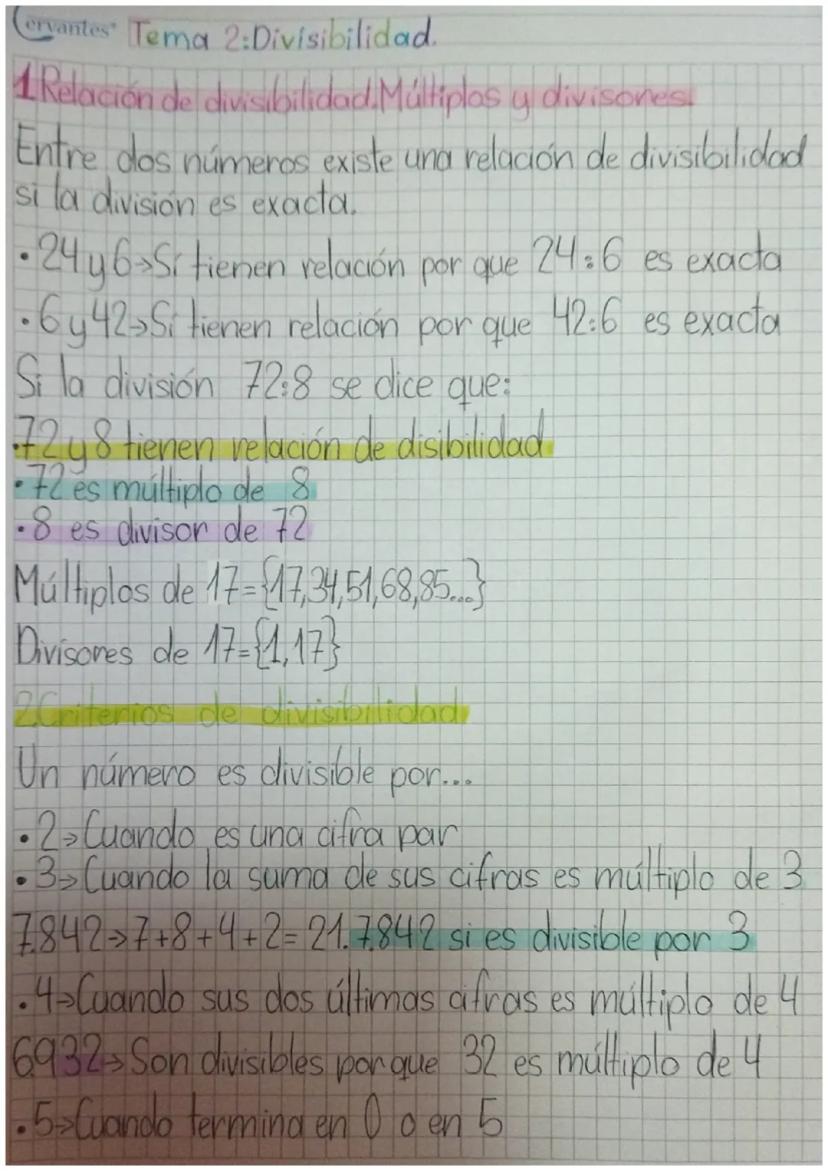 Cervantes Tema 2:Divisibilidad.
1Relación de divisibilidad.Múltiplos y divisores
Entre dos números existe una relación de divisibilidad
si la división es exacta.
·24 y 6→Sí tienen relación por que 24:6 es exacta
·6 y 42→Sí tienen relación por que 42:6 es exacta
Si la división 72:8 se dice que:
·72 y 8 tienen relación de disibilidad
·72 es múltiplo de 8
·8 es divisor de 72
Múltiplos de 17={17,34,51,68,85...}
Divisores de 17={1,17}
2Criterios de divisibilidad
Un número es divisible por...
·2→Cuando es una cifra par
·3→Cuando la suma de sus cifras es múltiplo de 3
7.842→7+8+4+2=21.7.842 si es divisible por 3
·4→Cuando sus dos últimas cifras es múltiplo de 4
6932→Son divisibles porque 32 es múltiplo de 4
·5→Cuando termina en 0 o en 5